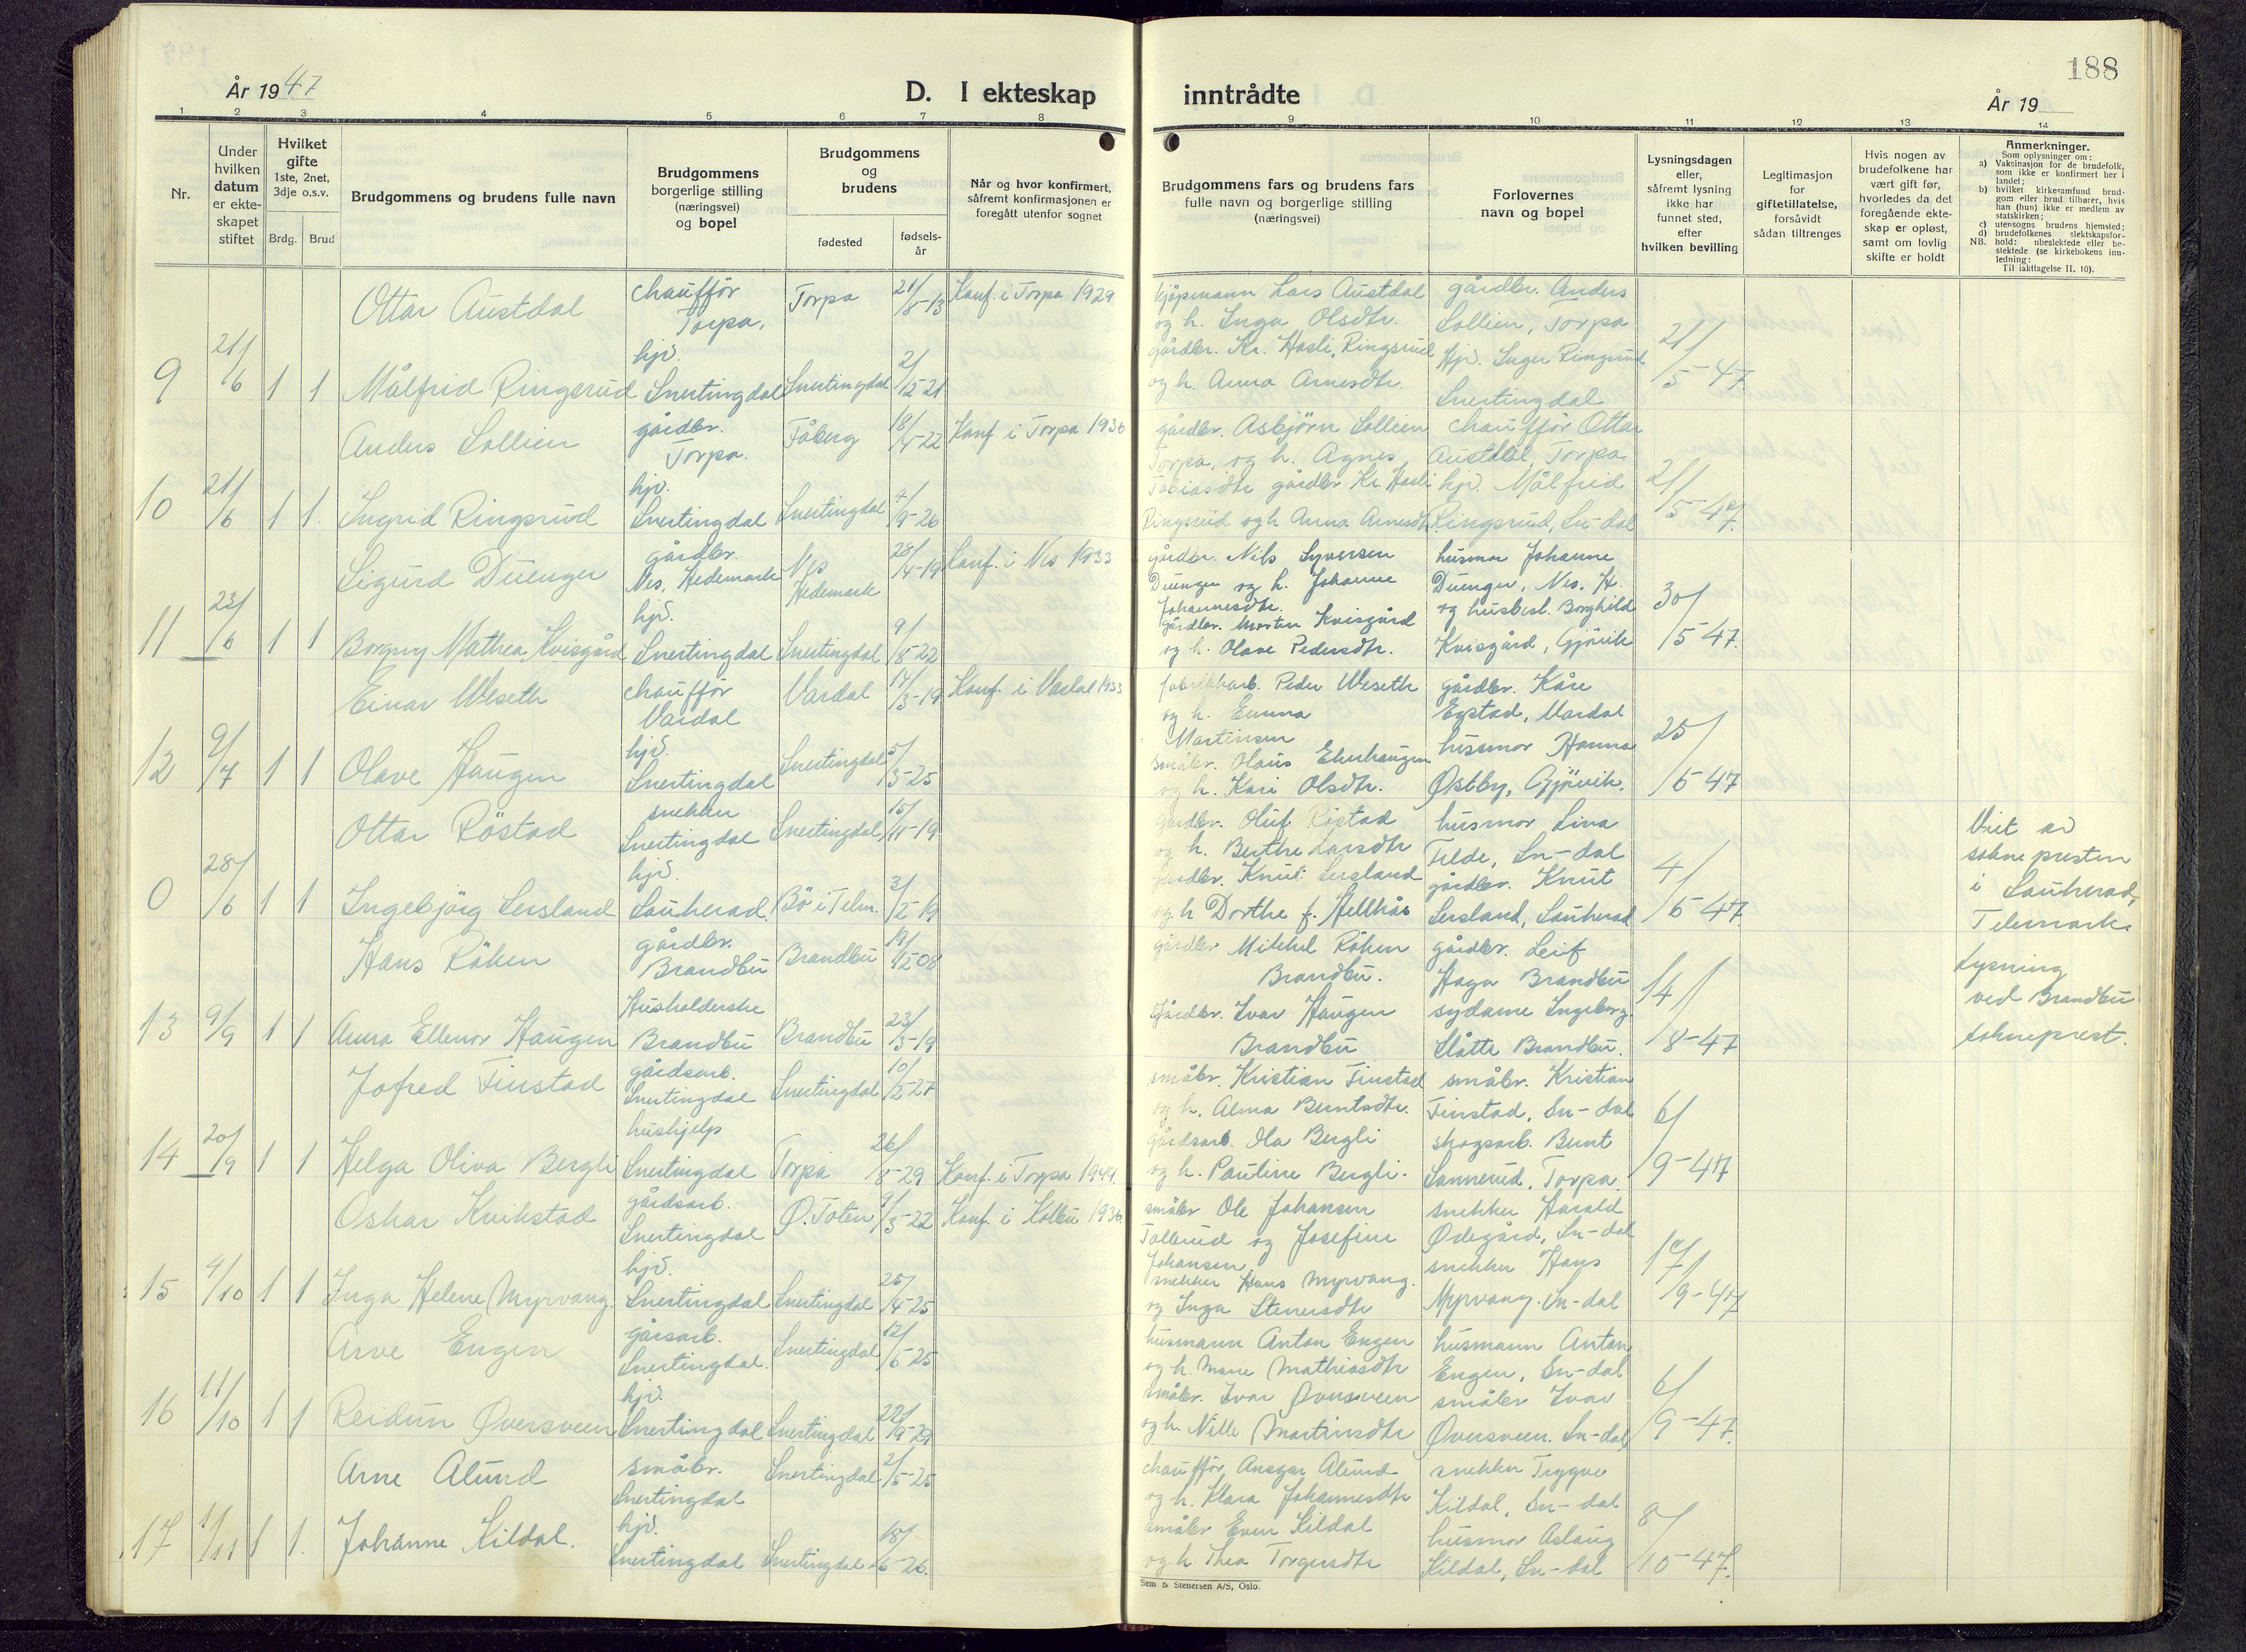 188
År 1947
D. I ekteskap inntrådte
År 19
1 2 3 4 5 6 7 8 9 10 11 12 13 14
Nr.
Under hvilken datum er ekteskapet stiftet
Hvilket gifte 1ste, 2net, 3dje o.s.v.
Brdg. Brud
Brudgommens og brudens fulle navn
Brudgommens borgerlige stilling (næringsvei) og bopel
Brudgommens og brudens
fødested
fødselsår
Når og hvor konfirmert, såfremt konfirmasjonen er foregått utenfor sognet
Brudgommens fars og brudens fars fulle navn og borgerlige stilling (næringsvei)
Forlovernes navn og bopel
Lysningsdagen eller, såfremt lysning ikke har funnet sted, efter hvilken bevilling
Legitimasjon for giftetillatelse, forsåvidt sådan tiltrenges
Hvis nogen av brudefolkene har vært gift før, hvorledes da det foregående ekteskap er opløst, samt om lovlig skifte er holdt
Anmerkninger.
Som oplysninger om:
a) Vaksinasjon for de brudefolk, som ikke er konfirmert her i landet;
b) hvilket kirkesamfund brudgom eller brud tilhører, hvis han (hun) ikke er medlem av statskirken;
c) utensogns brudens hjemsted;
d) brudefolkenes slektskapsforhold: ubeslektede eller beslektede (se kirkebokens innledning:
NB. Til iakttagelse II, 10).
Ottar Austdal chaufför Torpa, Torpa 21/8-13 Konf. i Torpa 1929
kjöpmann Lars Austdal og h. Inga Olsdtr. gårdbr. Anders Lollien, Torpa
9 21/6 1 1 Målfrid Ringsrud hjv. Snertingdal Snertingdal 2/12-21
gårdbr. Kr. Hasli, Ringsrud og h. Anna Arnesdtr. Hjv. Inger Ringsrud Snertingdal 21/5-47
Anders Lollien gårdbr. Torpa. Fåberg 18/4-22 Konf. i Torpa 1936
gårdbr. Asbjörn Lollien Torpa, og h. Agnes Tobiasdtr chaufför Ottar Austdal, Torpa
10 21/6 1 1. Ingrid Ringsrud hjv. Snertingdal Snertingdal 4/9-26
gårdbr Kr. Hasli Ringsrud og h Anna Arnesdtr hjv. Målfrid Ringsrud, Sn-dal 21/5-47.
Sigurd Duenger gårdbr. Nes, Hedemark Nes Hedemark 28/4-19 Konf. i Nes 1933
gårdbr. Nils Syversen Duengen og h. Johanne Johannesdtr. husmor Johanne Duenger, Nes. H.
11 23/6 1 1 Borgny Mathea Kvisgård hjv. Snertingdal Snertingdal 9/8-22
gårdbr. Morten Kvisgård og h. Olave Pedersdtr. og husbest. Borghild Kvisgård, Gjövik 30/5-47.
Einar Weseth chaufför Vardal Vardal 17/3-19 Konf. i Vardal 1933
fabrikkarb. Peder Weseth og h. Emma Martinsen gårdbr. Kåre Egstad, Vardal
12 9/7 1 1 Olave Haugen hjv. Snertingdal Snertingdal 5/3-25
småbr. Olaus h. Kari Olsdtr. husmor Hanna Østby, Gjövik. 25/6-47
Ottar Röstad snekker Snertingdal Snertingdal 15/11-19
gårdbr. Oluf Röstad og h. Berthe Larsdtr husmor Lina Telde, Sn-dal
0 28/6 1 1 Ingebjörg Sersland hjv. Sauherad. Bö i Telm. 3/2-19
gårdbr. Knut Sersland og h Dorthe f. gårdbr. Knut Sersland, Sauherad 4/6-47
Viet av soknepresten i Sauherad, Telemark.
Hans Röken gårdbr. Brandbu Brandbu 19/12-08
gårdbr Mikkel Röken Brandbu. gårdbr. Leif Haga Brandbu
13 9/9 1 1 Anna Ellenor Haugen Husholderske Brandbu Brandbu 23/3-19
Gårdbr. Ivar Haugen Brandbu sydame Ingeborg Slåtte Brandbu. 14/8-47
Lysning ved Brandbu sokneprest.
Jofred Finstad gårdsarb. Snertingdal Snertingdal 10/2-27
småbr. Kristian Finstad og h. Alma Berntsdtr. småbr. Kristian Finstad, Sn-dal
14 20/9 1 1 Helga Oliva Bergli hushjelp Snertingdal Torpa 26/8-29 Konf. i Torpa 1944.
gårdsarb. Ola Bergli og h. Pauline Bergli. skogsarb. Bernt Sannerud, Torpa. 6/9-47
Oskar Kvikstad gårdsarb. Snertingdal Ø. Toten 9/3-22 Konf. i Kolbu 1936.
småbr Ole Johansen Tollerud og Josefine Johansen snekker Harald Ødegård, Sn-dal
15 4/10 1 1 Inga Helene Myrvang. hjv. Snertingdal Snertingdal 25/4-25
snekker Hans Myrvang. og Inga Stenersdtr snekker Hans Myrvang. Sn-dal 17/9-47
Arve Engen gårsarb. Snertingdal. Snertingdal 12/6-25
husmann Anton Engen og h. Marie Mathiasdtr husmann Anton Engen, Sn-dal
16 11/10 1 1 Reidun Øversveen hjv. Snertingdal Snertingdal 22/9-29
småbr. Ivar Øversveen og h. Nille Martinsdtr småbr Ivar Øversveen. Sn-dal 6/9-47.
Arne Alund småbr. Snertingdal Snertingdal 2/5-25
chaufför Ansgar Alund og h. Klara Johannesdtr snekker Trygve Kildal, Sn-dal
17 1/11 1 1. Johanne Kildal. hjv. Snertingdal Snertingdal 18/6-26.
småbr Even Kildal og h. Thea Torgersdtr husmor Aslaug Kildal, Sn-dal 8/10-47.
Sem & Stenersen A/S, Oslo.